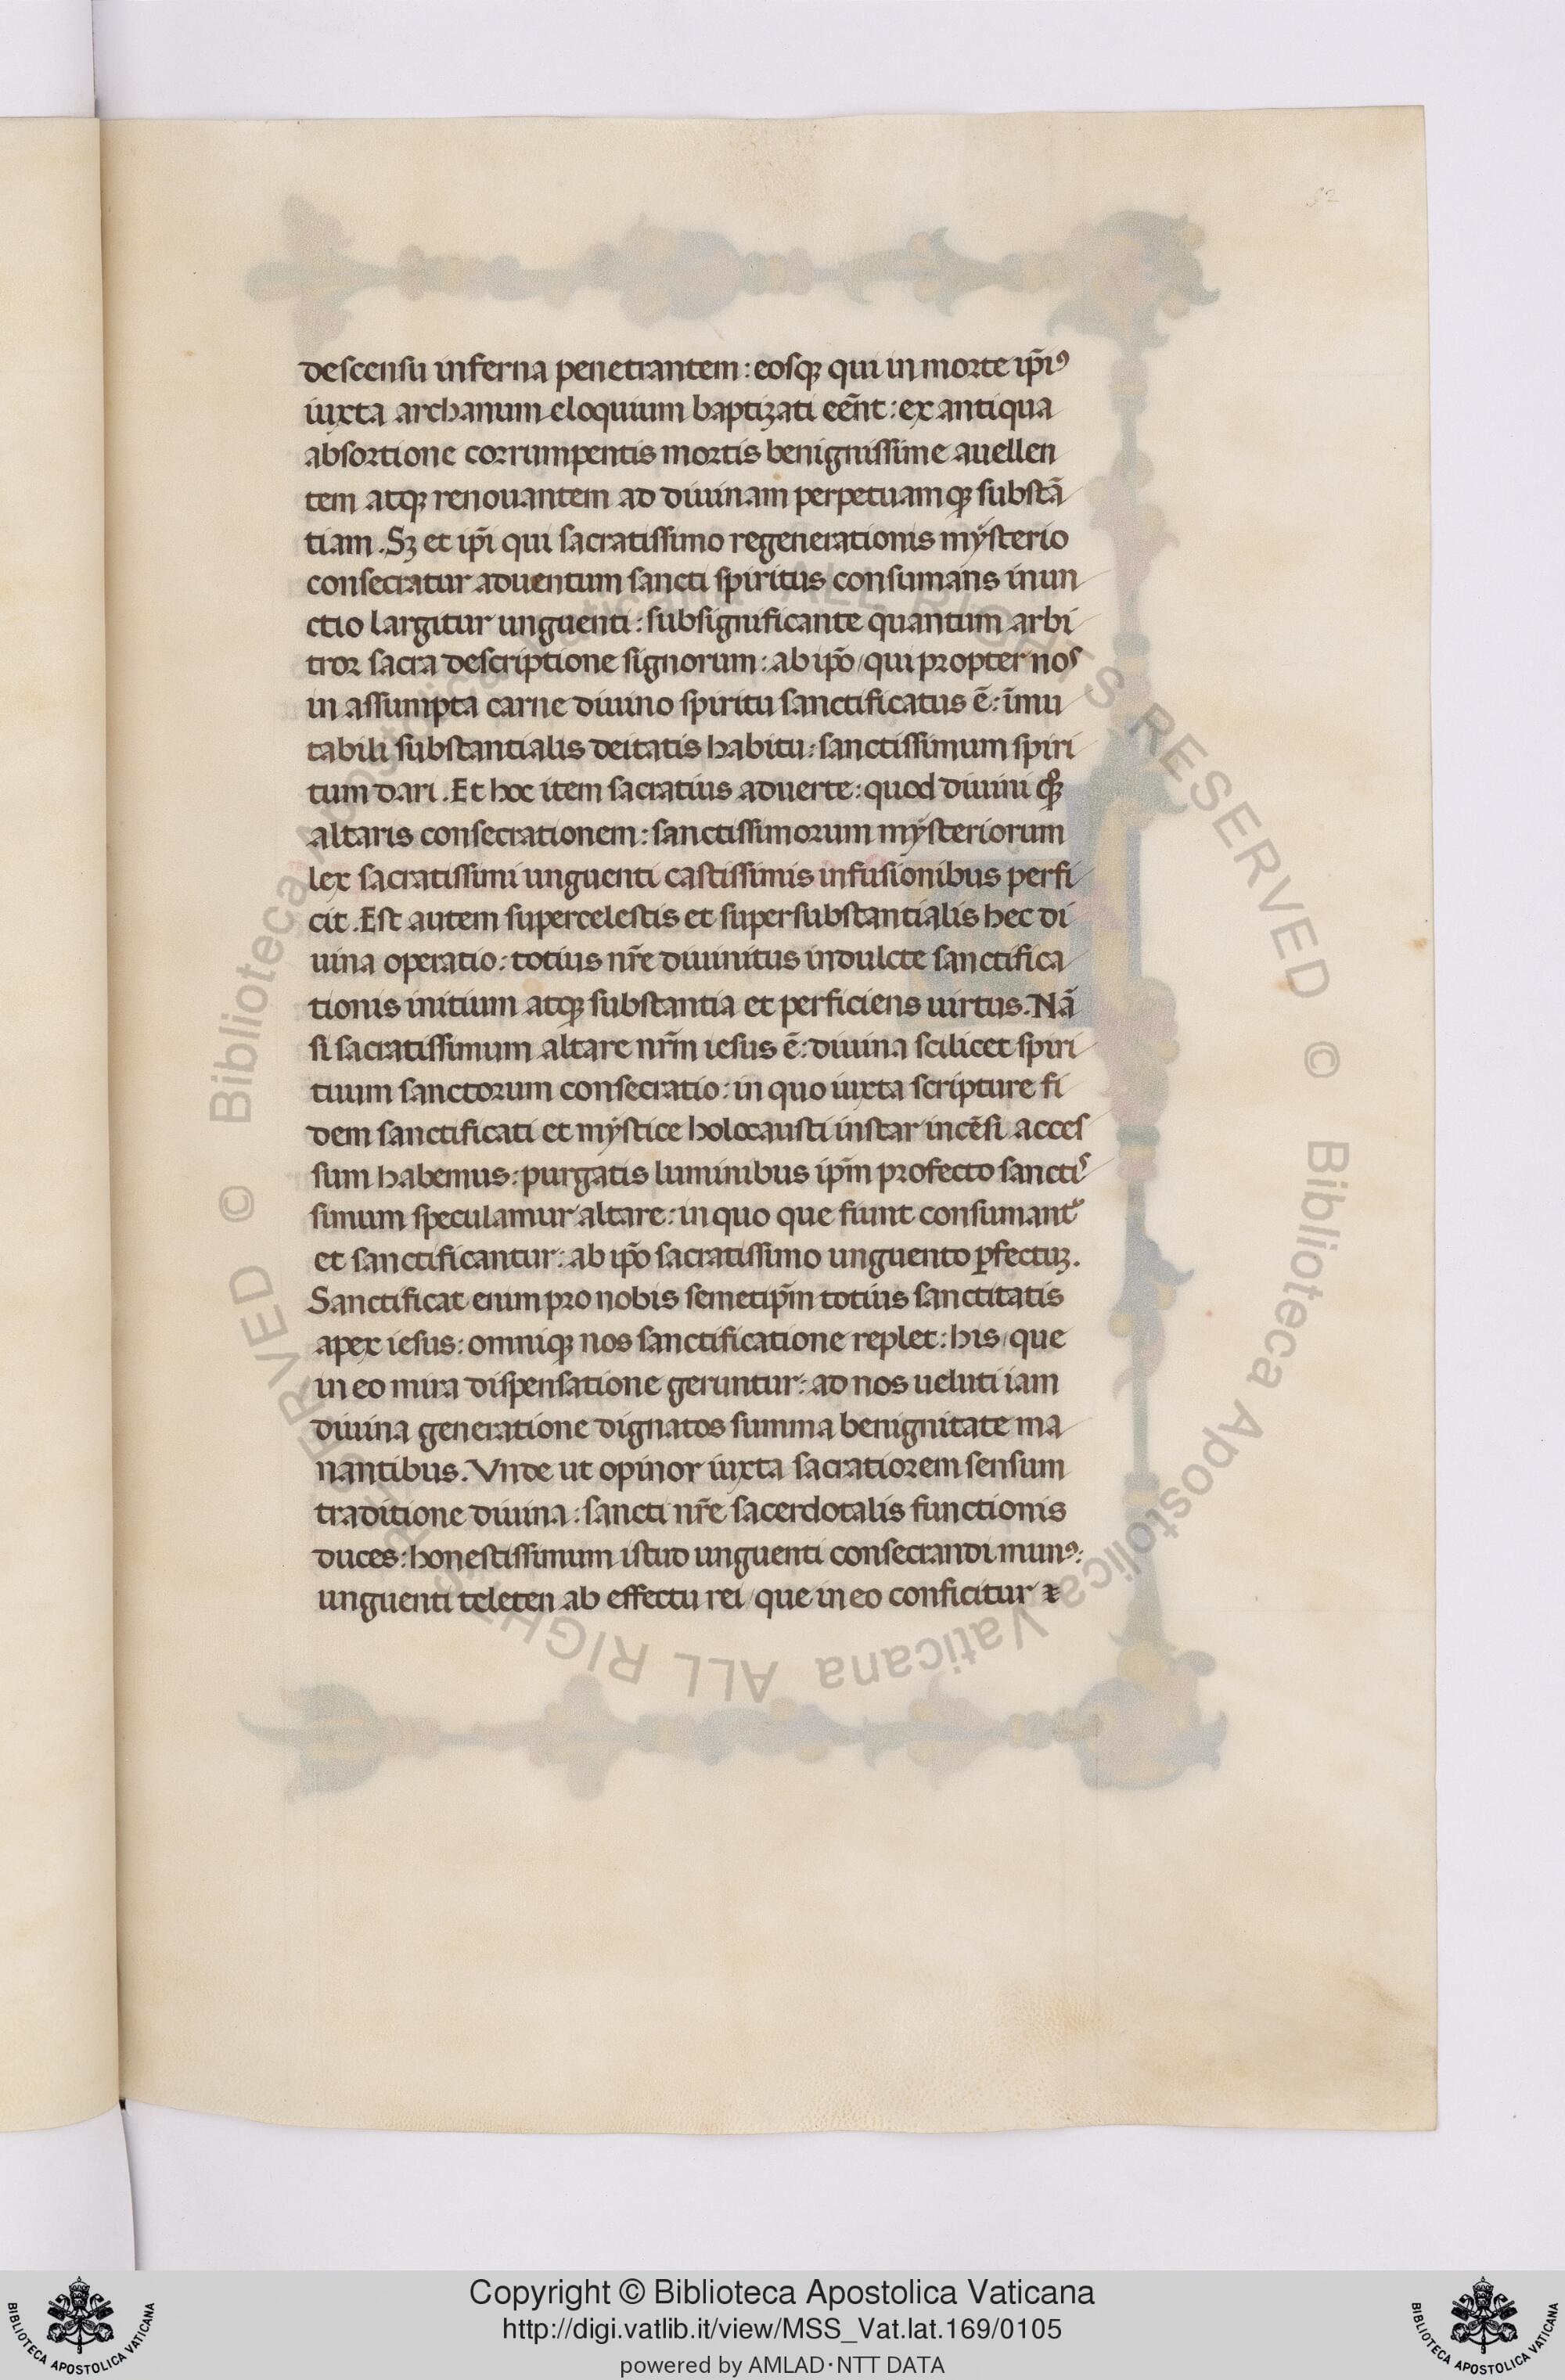 52
descensu inferna penetrantem: eosqꝫ qui in morte ip̄iꝰ
iuxta archanum eloquium baptizati eēnt: ex antiqua
absortione corrumpentis mortis benignissime auellen
tem atqꝫ renouantem ad diuinam perpetuamqꝫ substā
tiam. Sꝫ et ip̄i qui sacratissimo regenerationis mẏsterio
consecratur aduentum sancti spiritus consumans inun
ctio largitur unguenti: subsignificante quantum arbi
tror sacra descriptione signorum: ab ip̄o/qui propter nos
in assumpta carne diuino spiritu sanctificatus ē: īmu
tabili substantialis deitatis habitu: sanctissimum spiri
tum dari. Et hoc item sacratius aduerte: quod diuini qꝫ
altaris consecrationem: sanctissimorum mẏsteriorum
lex sacratissimi unguenti castissimis infusionibus perfi
cit. Est autem supercelestis et supersubstantialis hec di
uina operatio: totius nr̄e diuinitus indulcte sanctifica
tionis initium atqꝫ substantia et perficiens uirtus. Nā
si sacratissimum altare nr̄m iesus ē: diuina scilicet spiri
tuum sanctorum consecratio: in quo iuxta scripture fi
dem sanctificati et mẏstice holocausti instar incēsi acces
sum habemus: purgatis luminibus ip̄m profecto sanctis
simum speculamur altare: in quo que fiunt consumant᷑
et sanctificantur: ab ip̄o sacratissimo unguento ꝑfectuꝫ.
Sanctificat enim pro nobis semetip̄m totius sanctitatis
apex iesus: omniqꝫ nos sanctificatione replet: his/que
in eo mira dispensatione geruntur: ad nos ueluti iam
diuina generatione dignatos summa benignitate ma
nantibus. Vnde ut opinor iuxta sacratiorem sensum
traditione diuina: sancti nr̄e sacerdotalis functionis
duces: honestissimum istud unguenti consecrandi munꝰ:
unguenti teleten ab effectu rei/que in eo conficitur ⁊
© Biblioteca Apostolica Vaticana ALL RIGHTS RESERVED
© Biblioteca Apostolica Vaticana ALL RIGHTS RESERVED
Copyright © Biblioteca Apostolica Vaticana
http://digi.vatlib.it/view/MSS_Vat.lat.169/0105
powered by AMLAD·NTT DATA
BIBLIOTECA APOSTOLICA VATICANA
BIBLIOTECA APOSTOLICA VATICANA